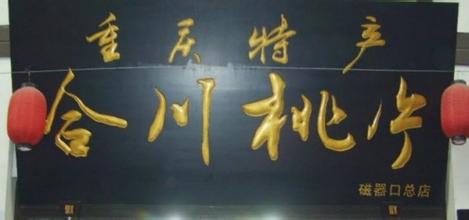 重庆特产
合川桃片
磁器口总店